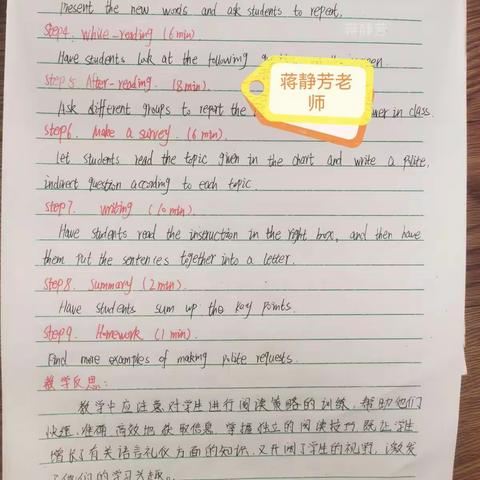 Present the new words and ask students to repeat.
Step4. While-reading (6 min)
蒋静芳
Have students look at the following
Step5 After-reading. (8 min)
蒋静芳老师
Ask different groups to report the in class.
Step6. Make a survey. (6 min).
Let students read the topic given in the chart and write a polite,
indirect question according to each topic.
Step7. Writing (10 min)
Have students read the instruction in the right box, and then have
them put the sentences together into a letter.
Step8. Summary (2 min).
Have students sum up the key points.
Step9. Homework (1 min)
Find more examples of making polite requests.
教学反思:
教学中应注意对学生进行阅读策略的训练,帮助他们
快速、准确高效地获取信息,掌握独立的阅读技巧,既让学生
增长了有关语言礼仪方面的知识,又开阔了学生的视野,激发
了他们的学习兴趣。